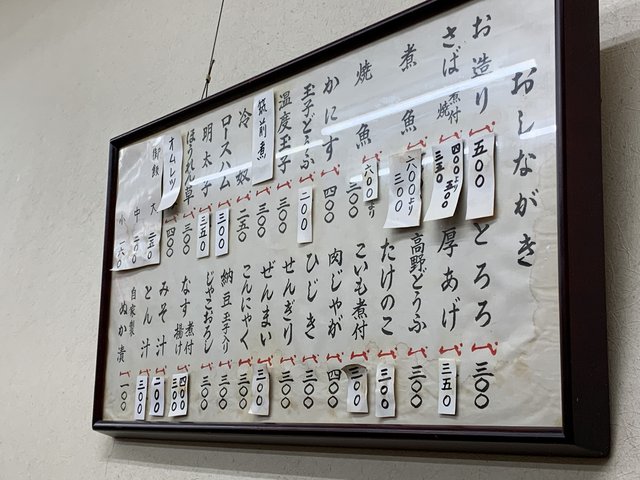 おしながき
お造り 五〇〇
さば 煮付 焼 四〇〇より 三五〇
煮魚 六〇〇より 三〇〇
焼魚 六〇〇より 三〇〇
かにす 四〇〇
玉子どうふ 二〇〇
温度玉子 三〇〇
筑前煮 三〇〇
冷奴 二五〇
ロースハム 三〇〇
明太子 三五〇
ほうれん草 三〇〇
オムレツ 四〇〇
御飯 大 二五〇
中 二〇〇
小 一六〇
とろろ 三〇〇
厚あげ 三五〇
高野どうふ 三〇〇
たけのこ 三〇〇
こいも煮付 三〇〇
肉じゃが 四〇〇
ひじき 三〇〇
せんぎり 三〇〇
ぜんまい 三〇〇
こんにゃく 三〇〇
納豆 玉子入り 三〇〇
じゃこおろし 三〇〇
なす 煮付 揚げ 四〇〇 三〇〇
みそ汁 一〇〇
とん汁 三〇〇
自家製 ぬか漬 一〇〇